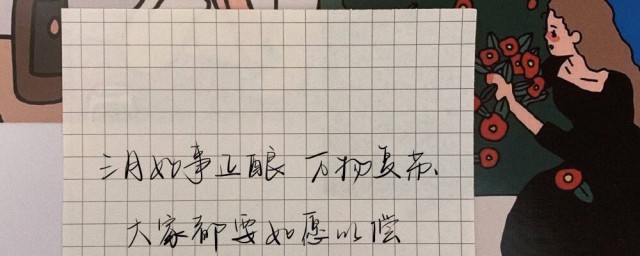 三月好事正酿 万物复苏
大家都要如愿以偿